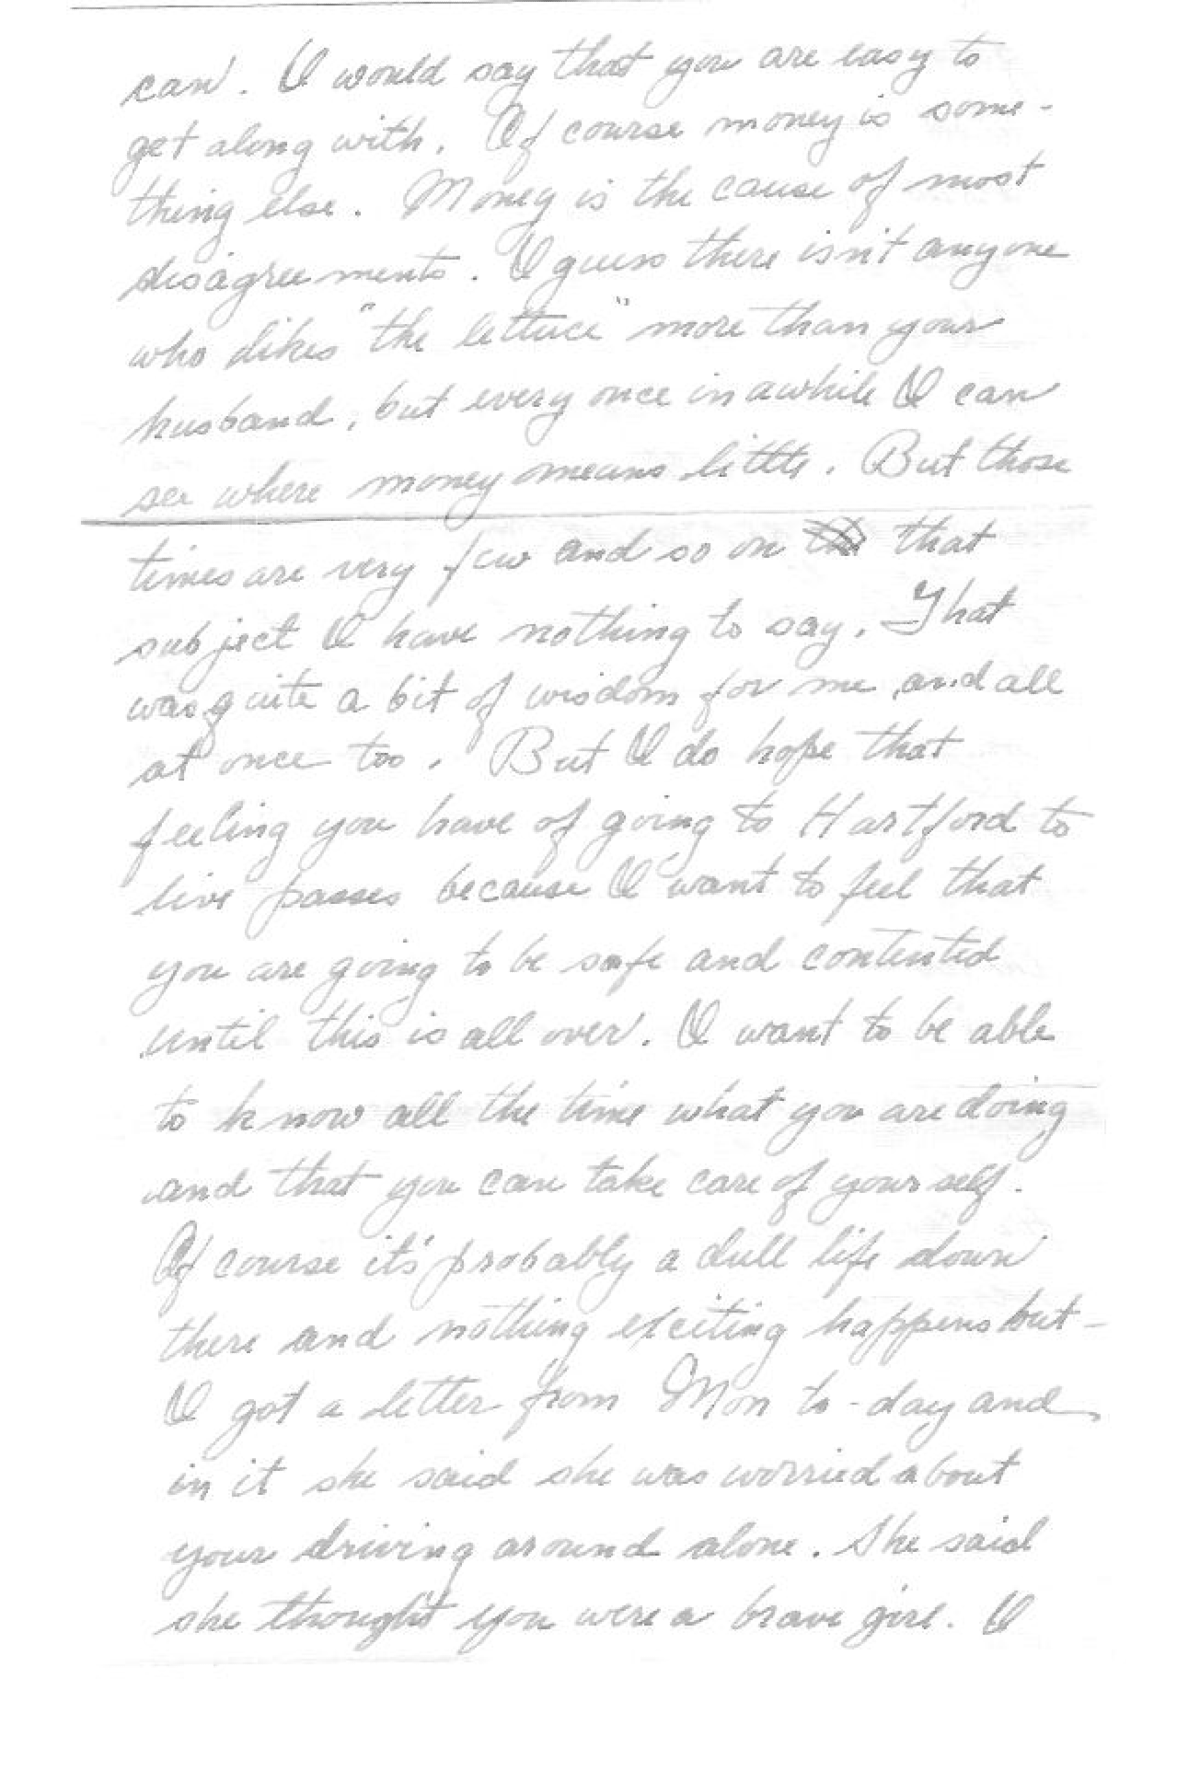 can. I would say that you are easy to
get along with. Of course money is some-
thing else. Money is the cause of most
disagreements. I guess there isn't anyone
who likes "the lettuce" more than your
husband, but every once in awhile I can
see where money means little. But those
times are very few and so on that
subject I have nothing to say. That
was quite a bit of wisdom for me and all
at once too. But I do hope that
feeling you have of going to Hartford to
live passes because I want to feel that
you are going to be safe and contented
until this is all over. I want to be able
to know all the time what you are doing
and that you can take care of yourself.
Of course it's probably a dull life down
there and nothing exciting happens but-
I got a letter from Mom to-day and
in it she said she was worried about
your driving around alone. She said
she thought you were a brave girl. I